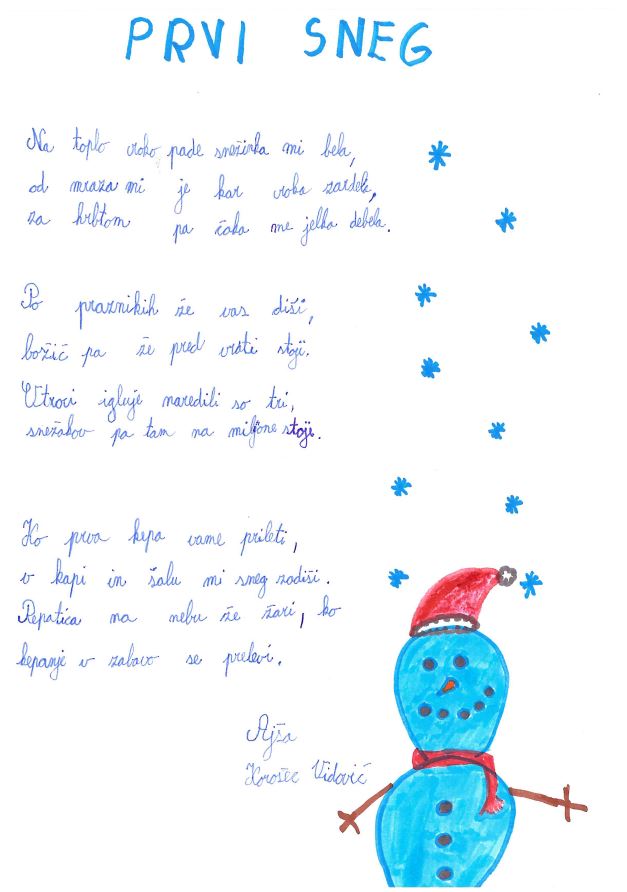 PRVI SNEG
Na toplo roko pade snežinka mi bela,
od mraza mi je kar roka zardela,
za hrbtom pa čaka me jelka debela.
Po praznikih že vas diši,
božič pa že pred vrati stoji.
Otroci igluje naredili so tri,
snežakov pa tam na miljone stoji.
Ko prva kepa vame prileti,
v kapi in šalu mi sneg zadiši.
Repatica na nebu že žari, ko
kepanje v zabavo se prelevi.
Ajša
Korošec Vidovič